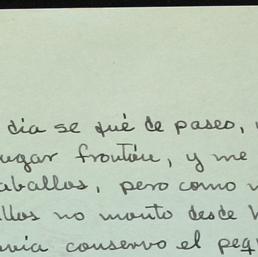 dia se qué de paseo,
ugar frontón, y me
aballos, pero como
llos no monto desde
vía conservo el peq